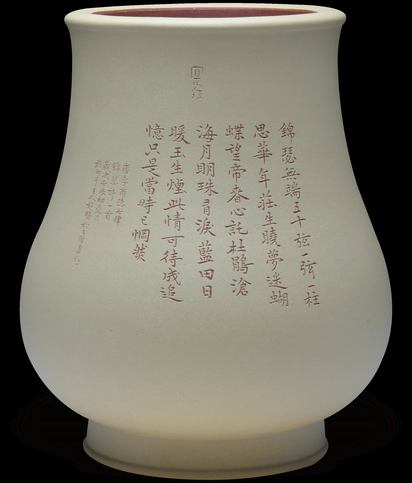 錦瑟無端五十弦一弦一柱
思華年莊生曉夢迷蝴
蝶望帝春心託杜鵑滄
海月明珠有淚藍田日
暖玉生煙此情可待成追
憶只是當時已惘然
李商隱七律
錦瑟詩一首